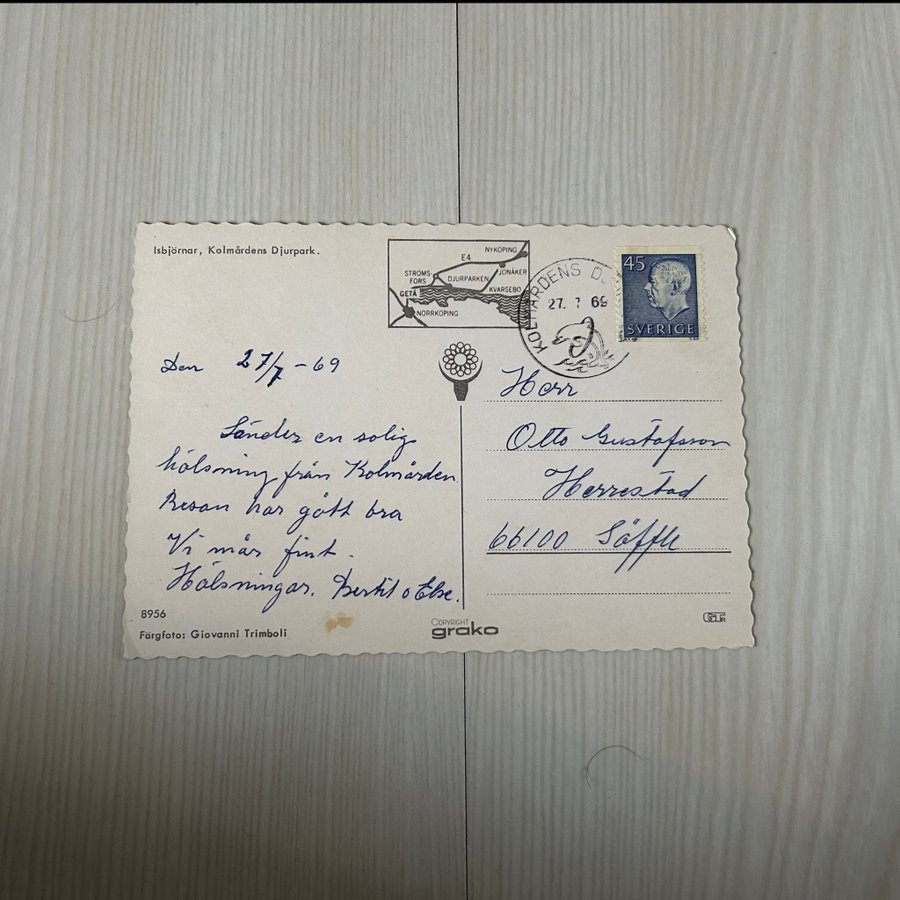 Isbjörnar, Kolmårdens Djurpark.
NYKÖPING
E4
JONÅKER
STRÖMS-
FORS
DJURPARKEN
KVARSEBO
GETÅ
NORRKÖPING
KOLMÅRDENS D
27. 7 69
45
SVERIGE
Den 27/7-69
Sänder en solig
hälsning från Kolmården.
Resan har gått bra
Vi mår fint.
Hälsningar. Bertil o Else.
Herr
Otto Gustafsson
Herrestad
66100 Säffle
8956
Färgfoto: Giovanni Trimboli
COPYRIGHT
grako